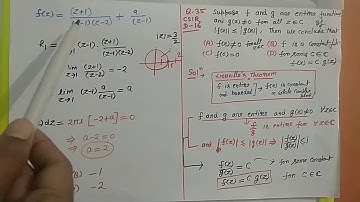 f(z) = (z+1) / (z-1)(z-2) + a / (z-1)
|z| = 3/2
lim z→1 (z-1) · (z+1) / (z-1)(z-2)
lim z→1 (z+1) / (z-2) = -2
lim z→1 (z-1) a / (z-1) = a
dz = 2πi [-2+a] = 0
a-2 = 0
a = 2
-1
-2
Q.35
CSIR
D-16
Suppose f and g are entire functions
and g(z) ≠ 0 for all z ∈ C if
|f(z)| ≤ |g(z)|, Then we conclude that
(A) f(z) ≠ 0 for all z ∈ C
(B) f is a constant
(C) f(0) = 0
(D) for some c ∈ C, f(z) = C g(z)
Sol:
Liouville's Theorem
f is entire and bounded → f(z) is constant
f and g are entire and g(z) ≠ 0 ∀ z ∈ C
f/g is entire for ∀ z ∈ C
and |f(z)| ≤ |g(z)| ⇒ |f(z)/g(z)| ≤ 1
f(z)/g(z) = C for some constant
f(z) = C g(z) for C ∈ C